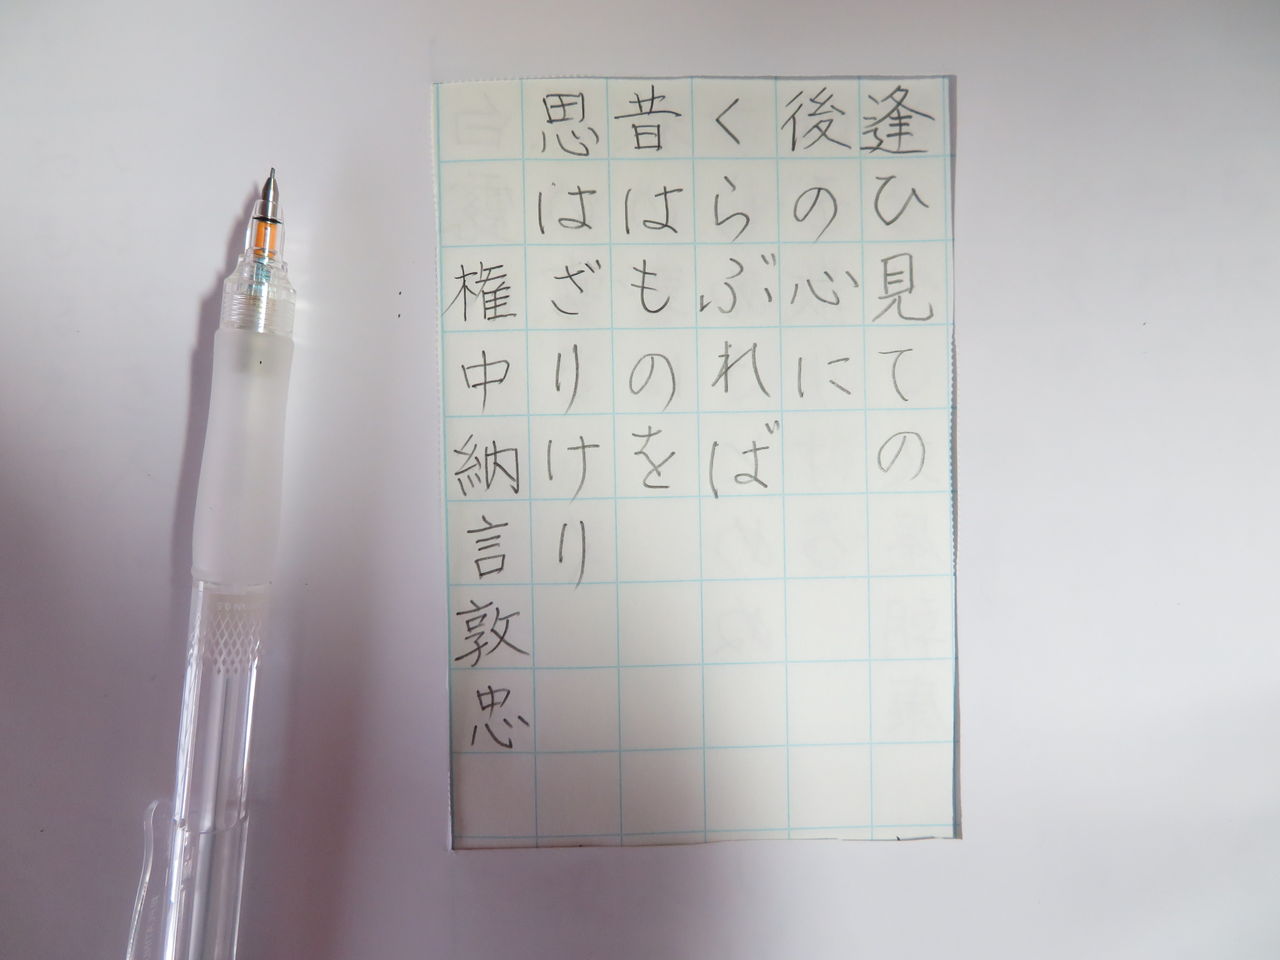 逢ひ見ての
後の心に
くらぶれば
昔はものを
思はざりけり
権中納言敦忠